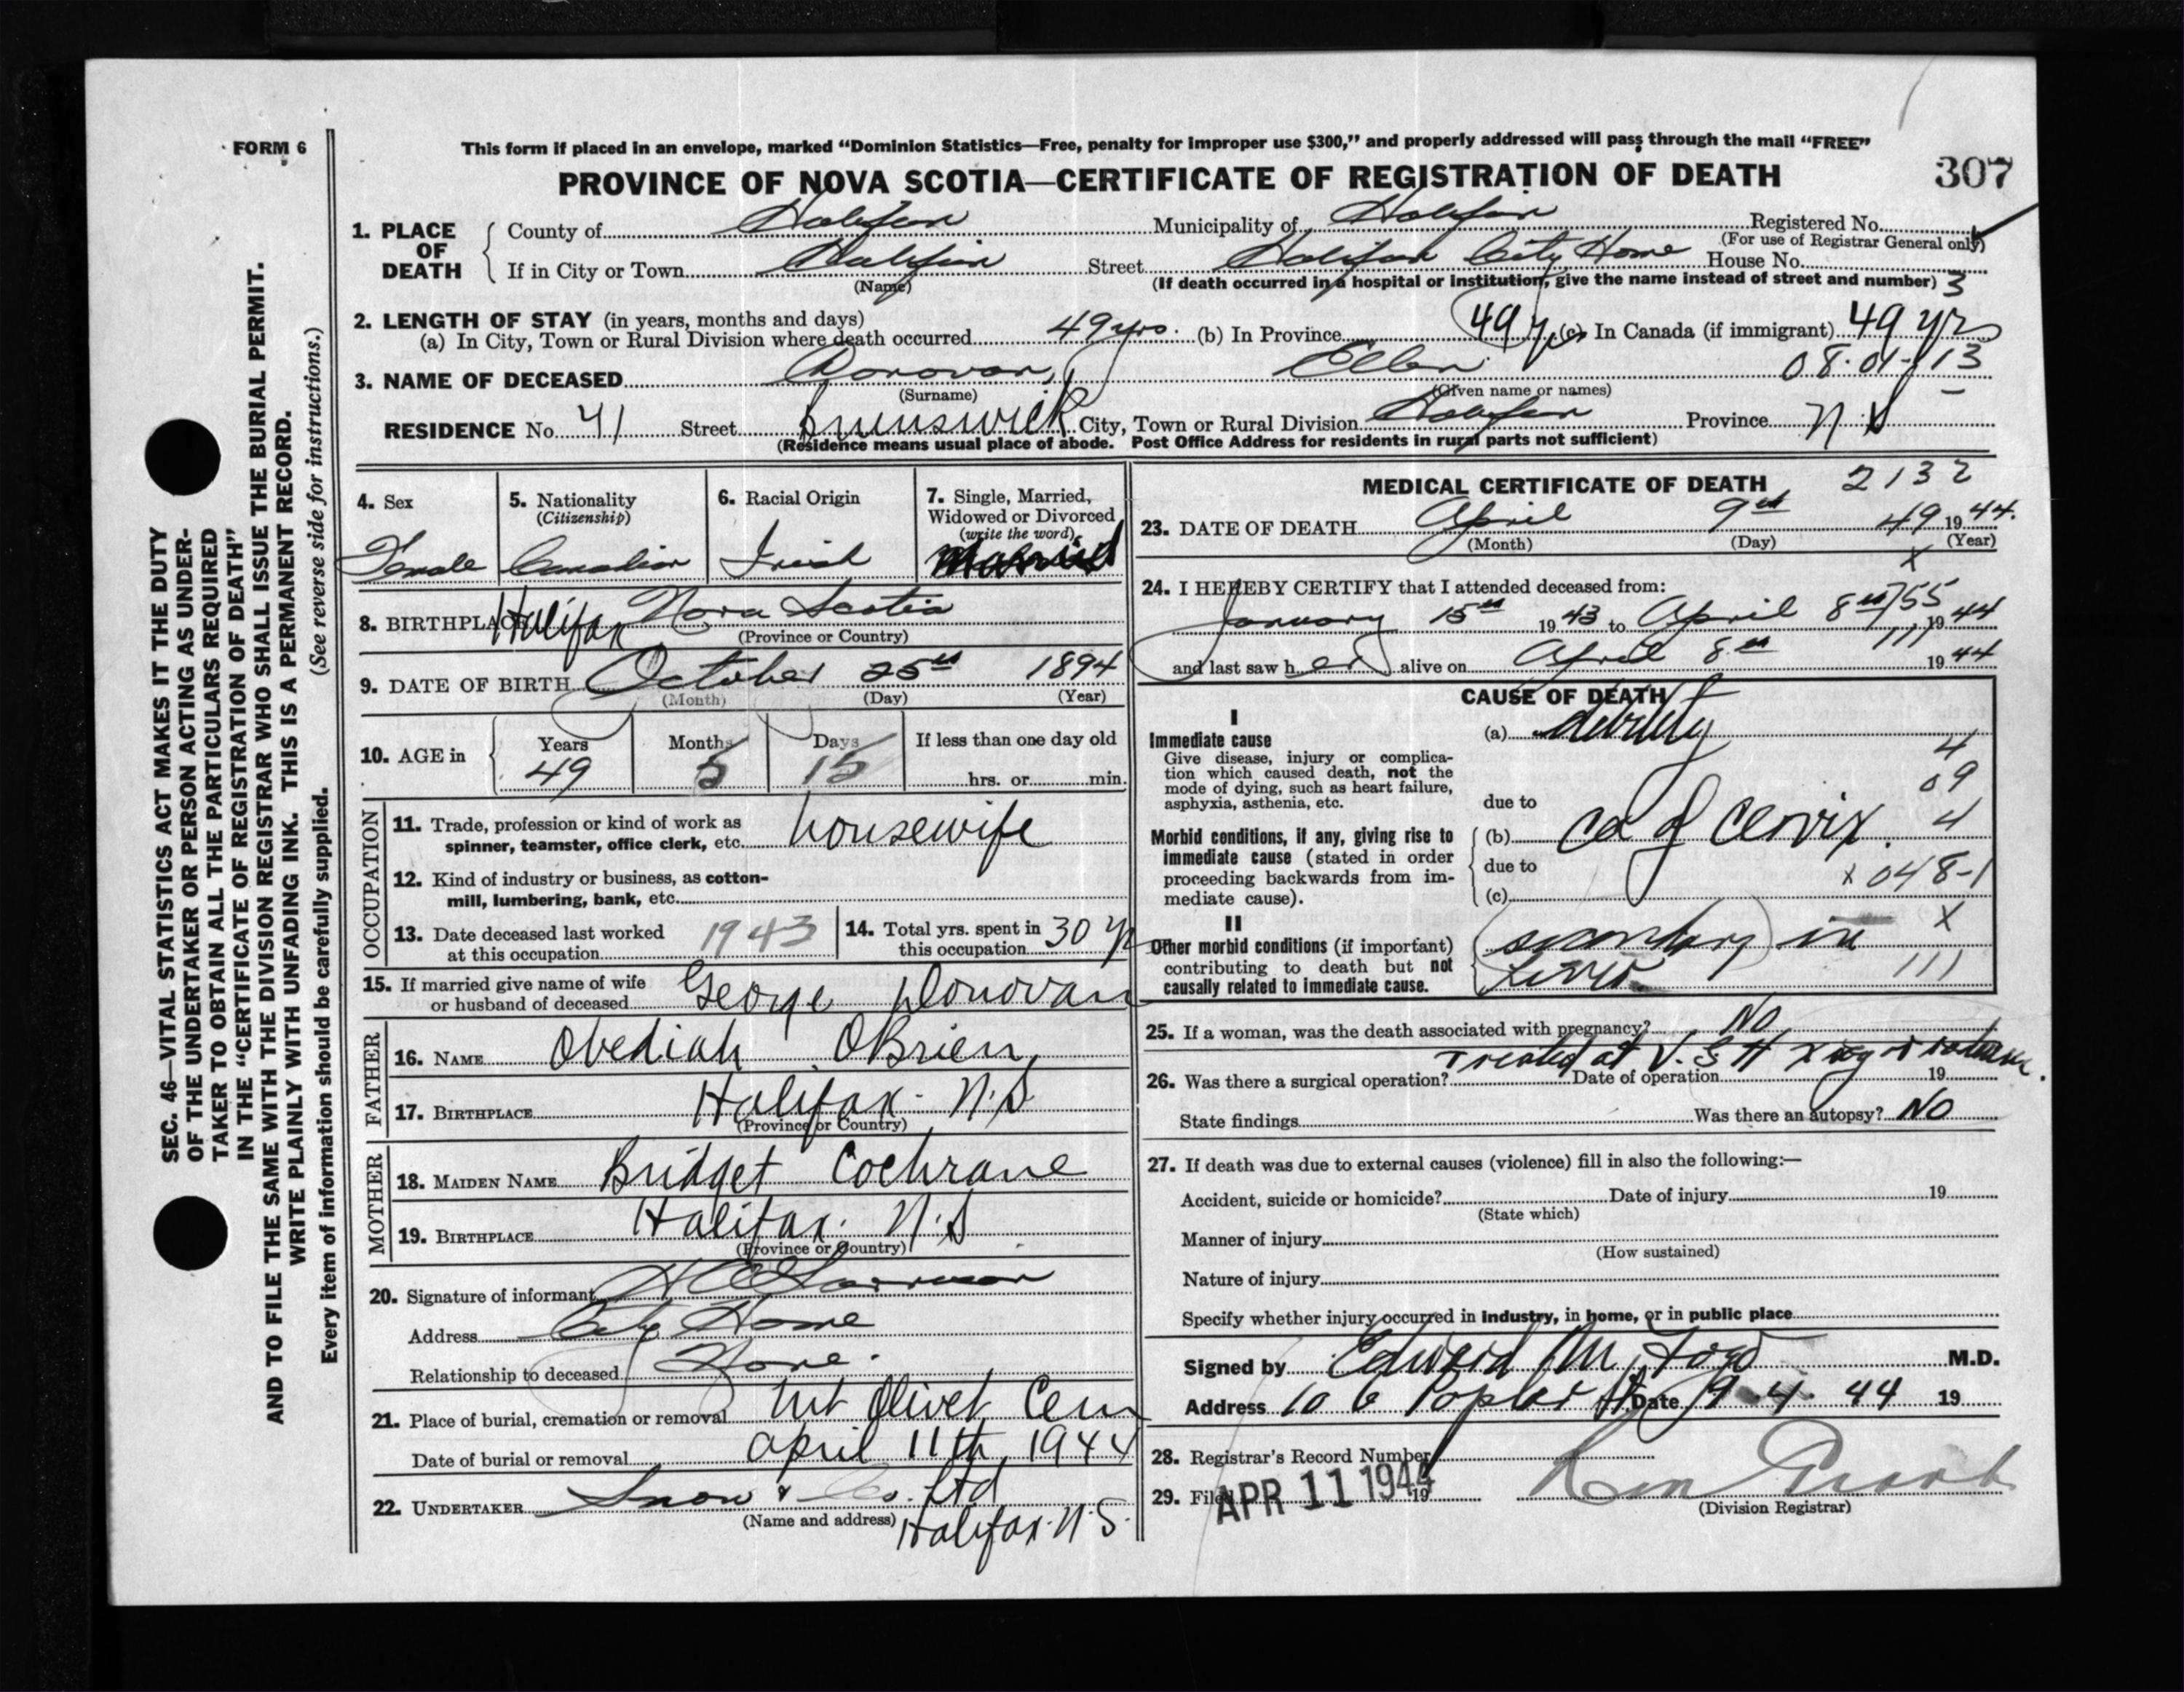 FORM 6
This form if placed in an envelope, marked “Dominion Statistics—Free, penalty for improper use $300,” and properly addressed will pass through the mail “FREE”
PROVINCE OF NOVA SCOTIA—CERTIFICATE OF REGISTRATION OF DEATH 307
1. PLACE OF DEATH County of Halifax Municipality of Halifax Registered No.
(For use of Registrar General only)
If in City or Town Halifax Street Halifax City Home House No.
(Name) (If death occurred in a hospital or institution, give the name instead of street and number) 3
2. LENGTH OF STAY (in years, months and days)
(a) In City, Town or Rural Division where death occurred 49 yrs. (b) In Province 49 y (c) In Canada (if immigrant) 49 yrs
3. NAME OF DECEASED Donovan, Ellen 08-01-13
(Surname) (Given name or names)
RESIDENCE No. 41 Street Brunswick City, Town or Rural Division Halifax Province N S
(Residence means usual place of abode. Post Office Address for residents in rural parts not sufficient)
4. Sex Female
5. Nationality (Citizenship) Canadian
6. Racial Origin Irish
7. Single, Married, Widowed or Divorced (write the word) Married
8. BIRTHPLACE Halifax Nova Scotia
(Province or Country)
9. DATE OF BIRTH October 25th 1894
(Month) (Day) (Year)
10. AGE in Years 49 Months 5 Days 15 If less than one day old
hrs. or min.
OCCUPATION
11. Trade, profession or kind of work as
spinner, teamster, office clerk, etc. housewife
12. Kind of industry or business, as cotton-
mill, lumbering, bank, etc.
13. Date deceased last worked
at this occupation 1943
14. Total yrs. spent in
this occupation 30 y
15. If married give name of wife
or husband of deceased George Donovan
FATHER
16. NAME Obediah OBrien
17. BIRTHPLACE Halifax. N.S
(Province or Country)
MOTHER
18. MAIDEN NAME Bridget Cochrane
19. BIRTHPLACE Halifax. N.S
(Province or Country)
20. Signature of informant
Address City Home
Relationship to deceased None.
21. Place of burial, cremation or removal Mt Olivet Cem
Date of burial or removal April 11th 1944
22. UNDERTAKER Snow & Co. Ltd
(Name and address) Halifax. N.S.
MEDICAL CERTIFICATE OF DEATH 2132
23. DATE OF DEATH April 9th 49 1944.
(Month) (Day) (Year)
X
24. I HEREBY CERTIFY that I attended deceased from:
January 15th 1943 to April 8th 1944
755
and last saw her alive on April 8th 1944
111
CAUSE OF DEATH
I
Immediate cause
Give disease, injury or complica-
tion which caused death, not the
mode of dying, such as heart failure,
asphyxia, asthenia, etc.
(a) debility
4
09
due to
Morbid conditions, if any, giving rise to
immediate cause (stated in order
proceeding backwards from im-
mediate cause).
(b) Ca of Cervix 4
due to
x 048-1
(c)
II
Other morbid conditions (if important)
contributing to death but not
causally related to immediate cause.
secondary in X
liver 111
25. If a woman, was the death associated with pregnancy? No
Treated at V. G H x ray & radium.
26. Was there a surgical operation? Date of operation 19
State findings Was there an autopsy? No
27. If death was due to external causes (violence) fill in also the following:—
Accident, suicide or homicide? Date of injury 19
(State which)
Manner of injury
(How sustained)
Nature of injury
Specify whether injury occurred in industry, in home, or in public place
Signed by Edward M. M.D.
Address 106 Poplar St Date 9-4-44 19
28. Registrar's Record Number
29. Filed APR 11 1944 19
(Division Registrar)
SEC. 46—VITAL STATISTICS ACT MAKES IT THE DUTY
OF THE UNDERTAKER OR PERSON ACTING AS UNDER-
TAKER TO OBTAIN ALL THE PARTICULARS REQUIRED
IN THE “CERTIFICATE OF REGISTRATION OF DEATH”
AND TO FILE THE SAME WITH THE DIVISION REGISTRAR WHO SHALL ISSUE THE BURIAL PERMIT.
WRITE PLAINLY WITH UNFADING INK. THIS IS A PERMANENT RECORD.
(See reverse side for instructions.)
Every item of information should be carefully supplied.